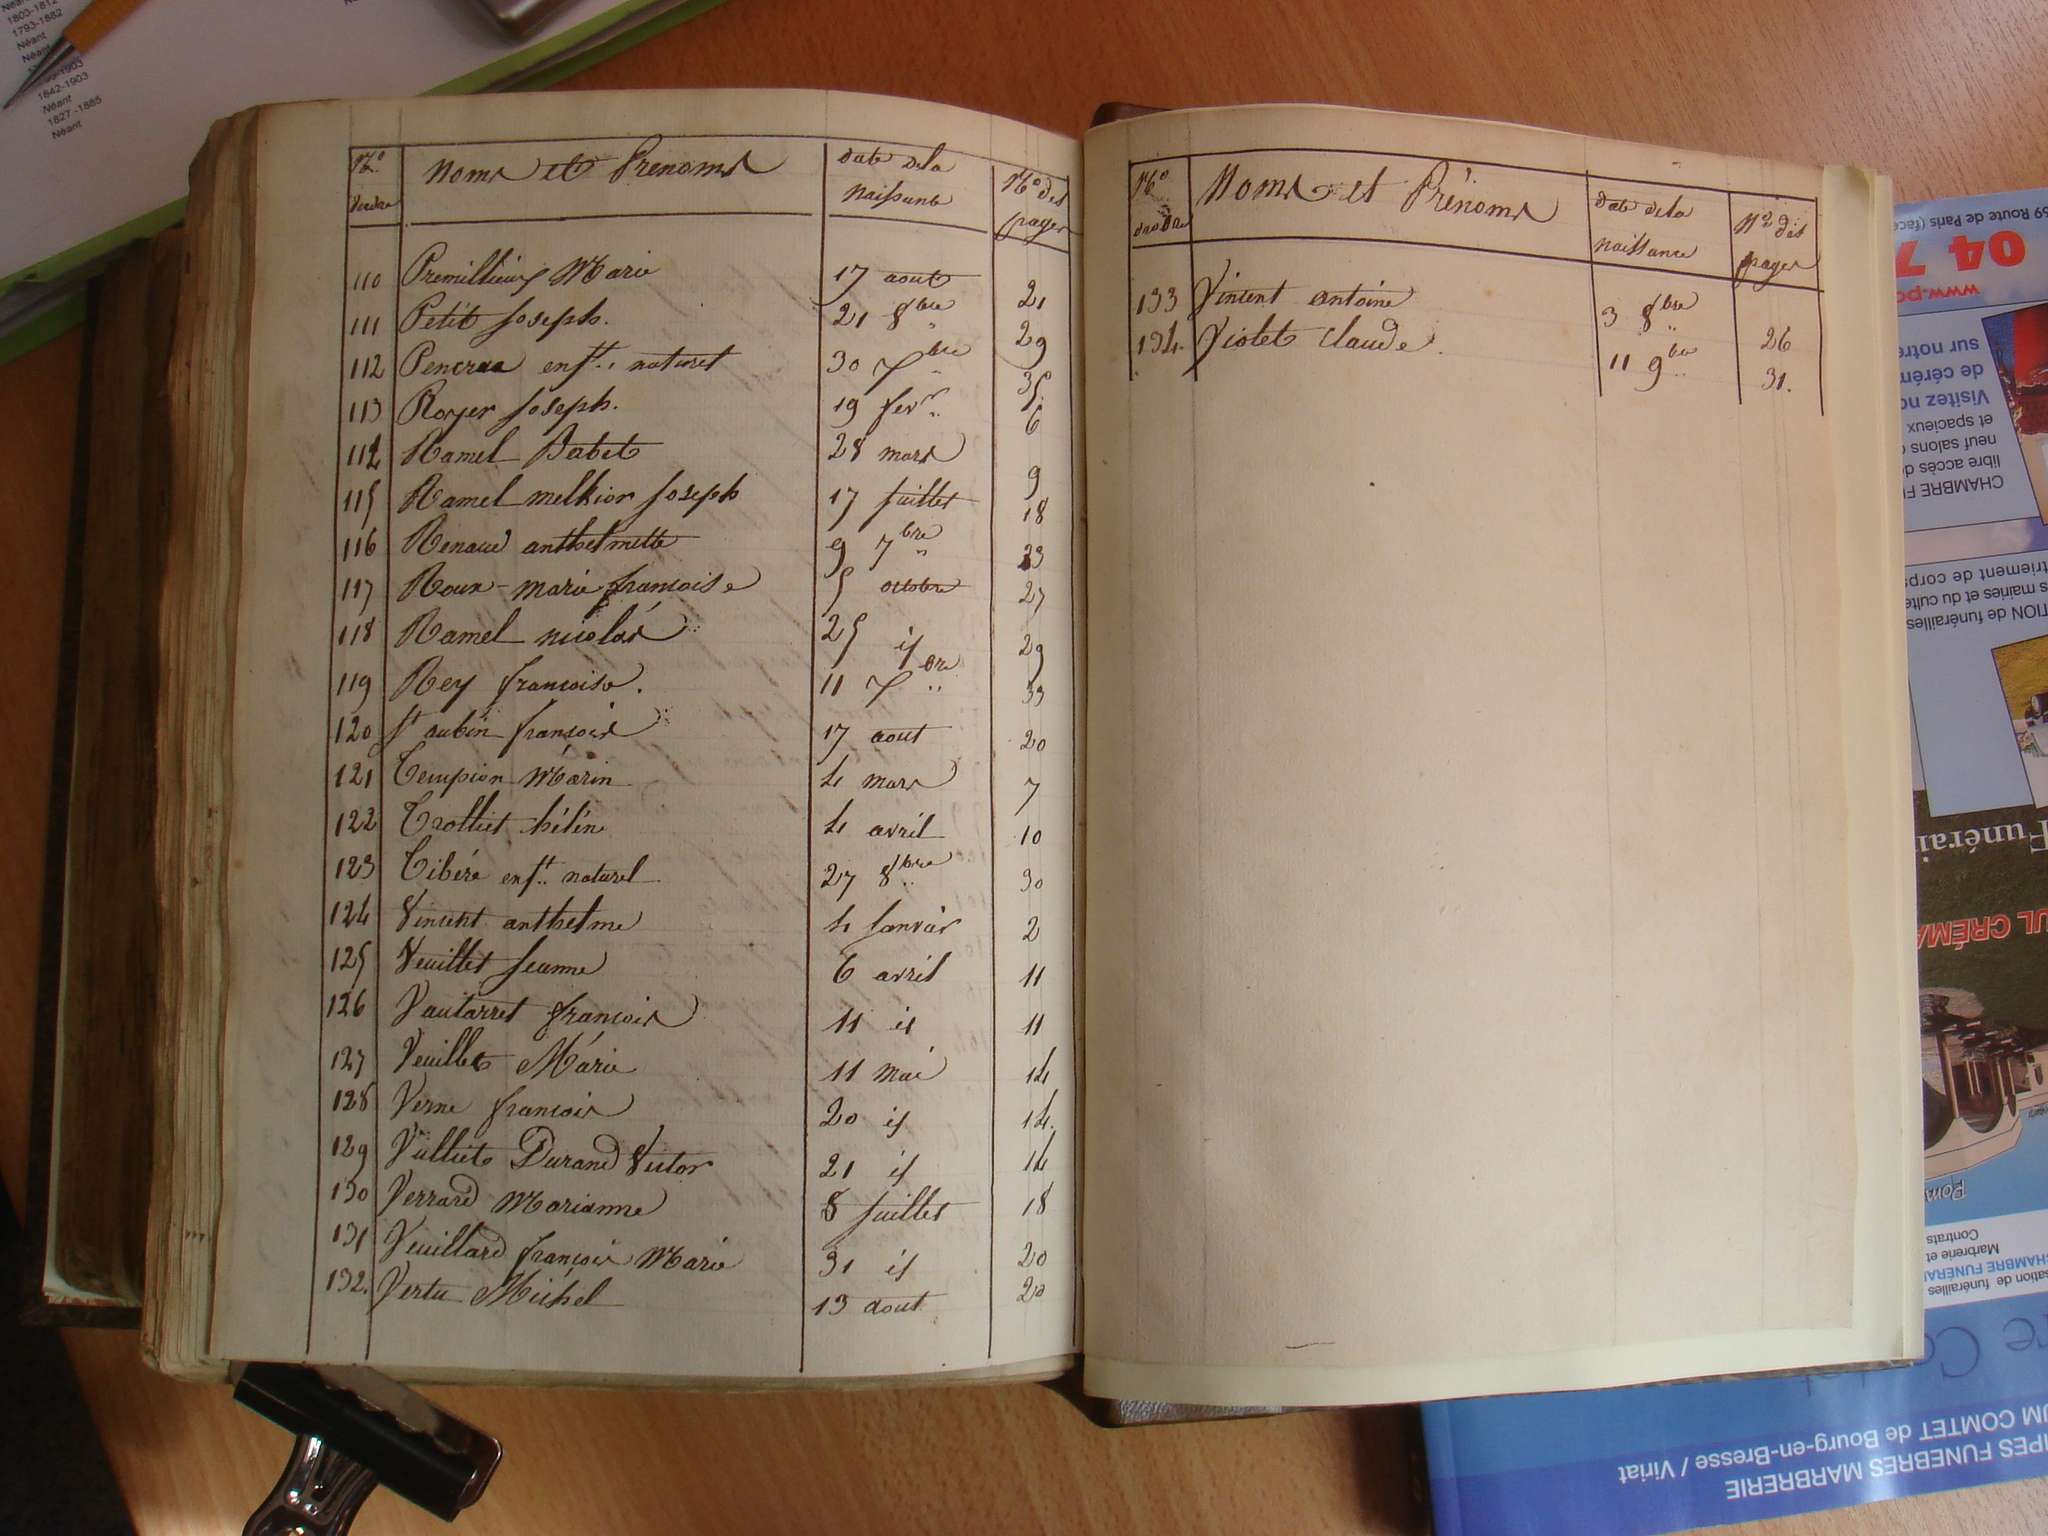 1803-1812
1793-1882
Néant
Néant
1842-1903
Néant
1827-1885
Néant
No d'ordre Noms et Prenoms date de la naissance No des pages
110 Premillieux Marie 17 aout 21
111 Petit Joseph. 21 8bre 29
112 enft. naturel 30 7bre 35
113 Royer Joseph. 19 fevr 6
114 Ramel Babet 28 mars 9
115 Ramel melkior Joseph 17 Juillet 18
116 Renaud anthelmette 9 7bre 23
117 Roux marie françoise 5 octobre 27
118 Ramel nicolas 25 id 29
119 Rey françoise. 11 7bre 33
120 St aubin françois 17 aout 20
121 Tempion Marin 4 mars 7
122 Trolliet hélén 4 avril 10
123 Tibére enft. naturel 27 8bre 30
124 Vincent anthelme 4 Janvier 2
125 Veuillet Jeanne 6 avril 11
126 Vautarret françois 11 id 11
127 Veuillet Marie 11 mai 14
128 Verne françois 20 id 14.
129 Vulliet Durand Victor 21 id 14
130 Verrard Marianne 8 Juillet 18
131 Veuillard françois Marie 31 id 20
132. Vertu Michel 13 aout 20
No d'ordre Noms et Prénoms date de la naissance No des pages
133 Vincent antoine 3 8bre 26
134. Violet Claude. 11 9bre 31.
69 Route de Paris (face
04 7
www.po
sur notre
de cérém
Visitez no
et spacieux
neuf salons
libre accès d
CHAMBRE F
de corps
s mairies et du culte
TION de funérailles
Funérai
UL CRÉMA
Contrats
Marbrerie et
CHAMBRE FUNÉRA
sation de funérailles
UM COMTET de Bourg-en-Bresse / Viriat
PES FUNEBRES MARBRERIE